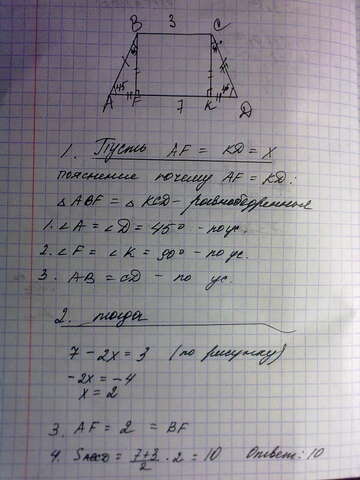 B 3 C
45
A F 7 K D
1. Пусть AF = KD = x
пояснение почему AF = KD:
△ABF = △KCD - равнобедренные
1. ∠A = ∠D = 45° - по ус.
2. ∠F = ∠K = 90° - по ус.
3. AB = CD - по ус.
2. тогда
7 - 2x = 3 (по рисунку)
-2x = -4
x = 2
3. AF = 2 = BF
4. S = 7+3/2 · 2 = 10 Ответ: 10